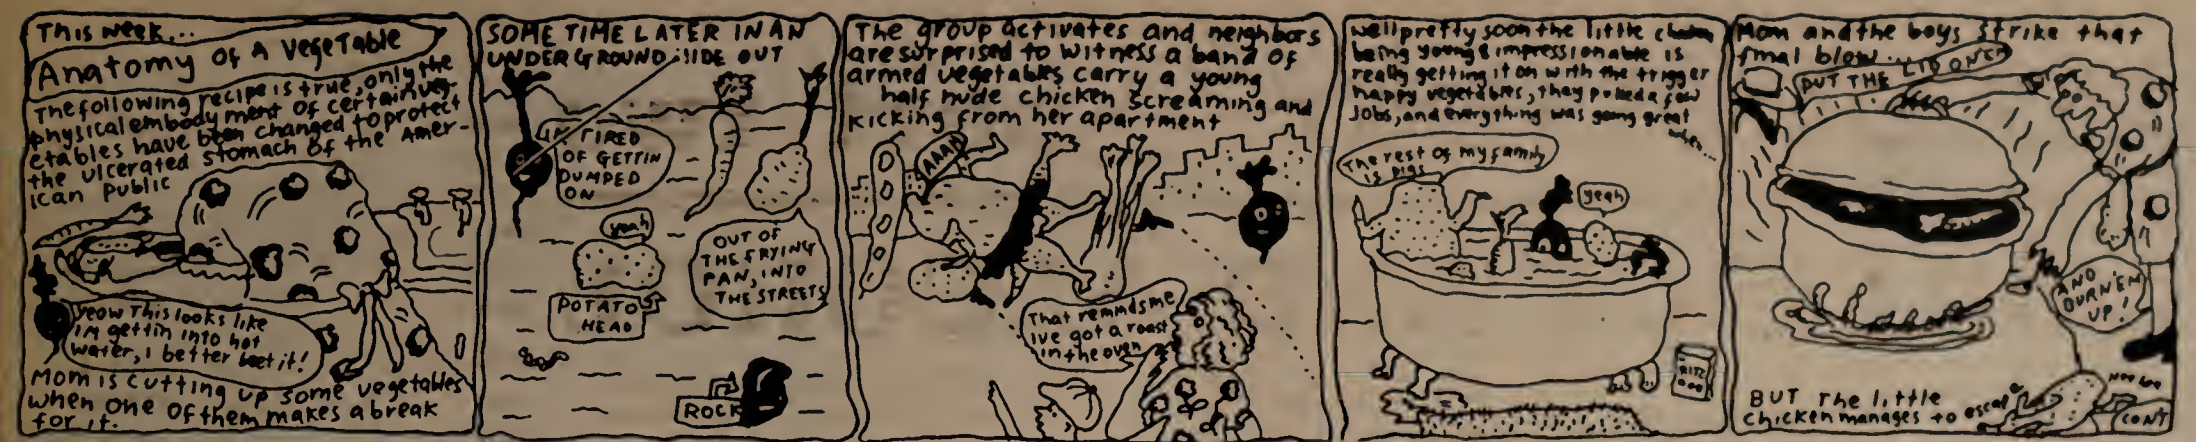 This week...
Anatomy of A VegeTable
The following recipe is true, only the
physical embodyment of certain veg-
etables have been changed to protect
the ulcerated stomach of the Amer-
ican Public
Yeow This looks like
IM gettin into hot
water, I better beet it!
Mom is cutting up some vegetables
when one of them makes a break
for it.
SOME TIME LATER IN AN
UNDERGROUND HIDE OUT
IM TIRED
OF GETTIN
DUMPED
ON
yeah
POTATO
HEAD
OUT OF
THE FRYING
PAN, INTO
THE STREETS
ROCK
The group activates and neighbors
are surprised to witness a band of
armed vegetables carry a young
half nude chicken screaming and
kicking from her apartment
AAAH
That reminds me
Ive got a roast
in the oven
Well pretty soon the little
being young & impressionable is
really getting it on with the trigger
happy vegetables, they pulled a few
Jobs, and everything was going great
when....
The rest of my family
is pigs
yeah
RITZ
Mom and the boys strike that
final blow...
PUT THE LID ON EM
AND
BURN 'EM
UP!
BUT The little
chicken manages to escape
CONT